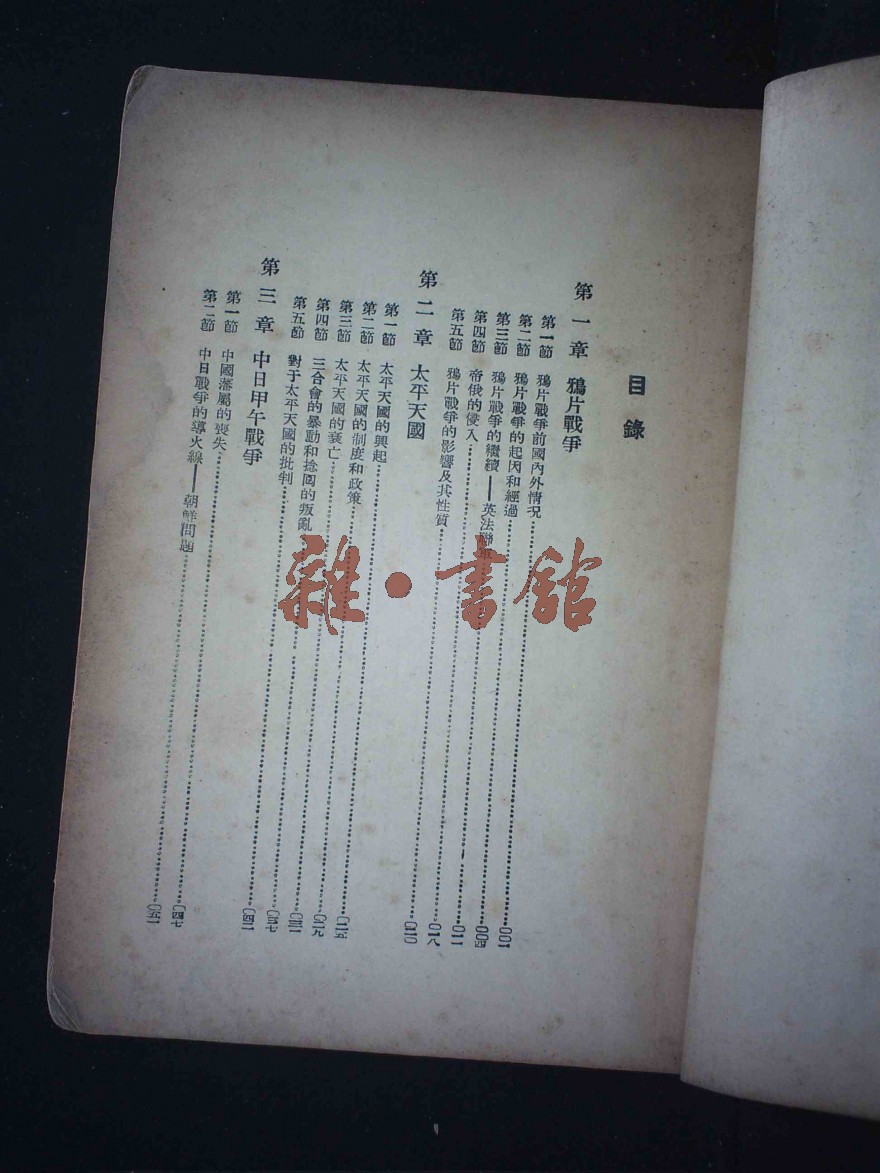 目錄
第一章 鴉片戰爭
第一節 鴉片戰爭前國內外情況……〇〇一
第二節 鴉片戰爭的起因和經過……〇〇四
第三節 鴉片戰爭的繼續——英法聯軍……〇一一
第四節 帝俄的侵入……〇一八
第五節 鴉片戰爭的影響及其性質……〇二〇
第二章 太平天國
第一節 太平天國的興起……〇二五
第二節 太平天國的制度和政策……〇二九
第三節 太平天國的衰亡……〇三一
第四節 三合會的暴動和捻的叛亂……〇三七
第五節 對于太平天國的批判……〇四一
第三章 中日甲午戰爭
第一節 中國藩屬的喪失……〇四七
第二節 中日戰爭的導火線——朝鮮問題……〇五一
雜·書館